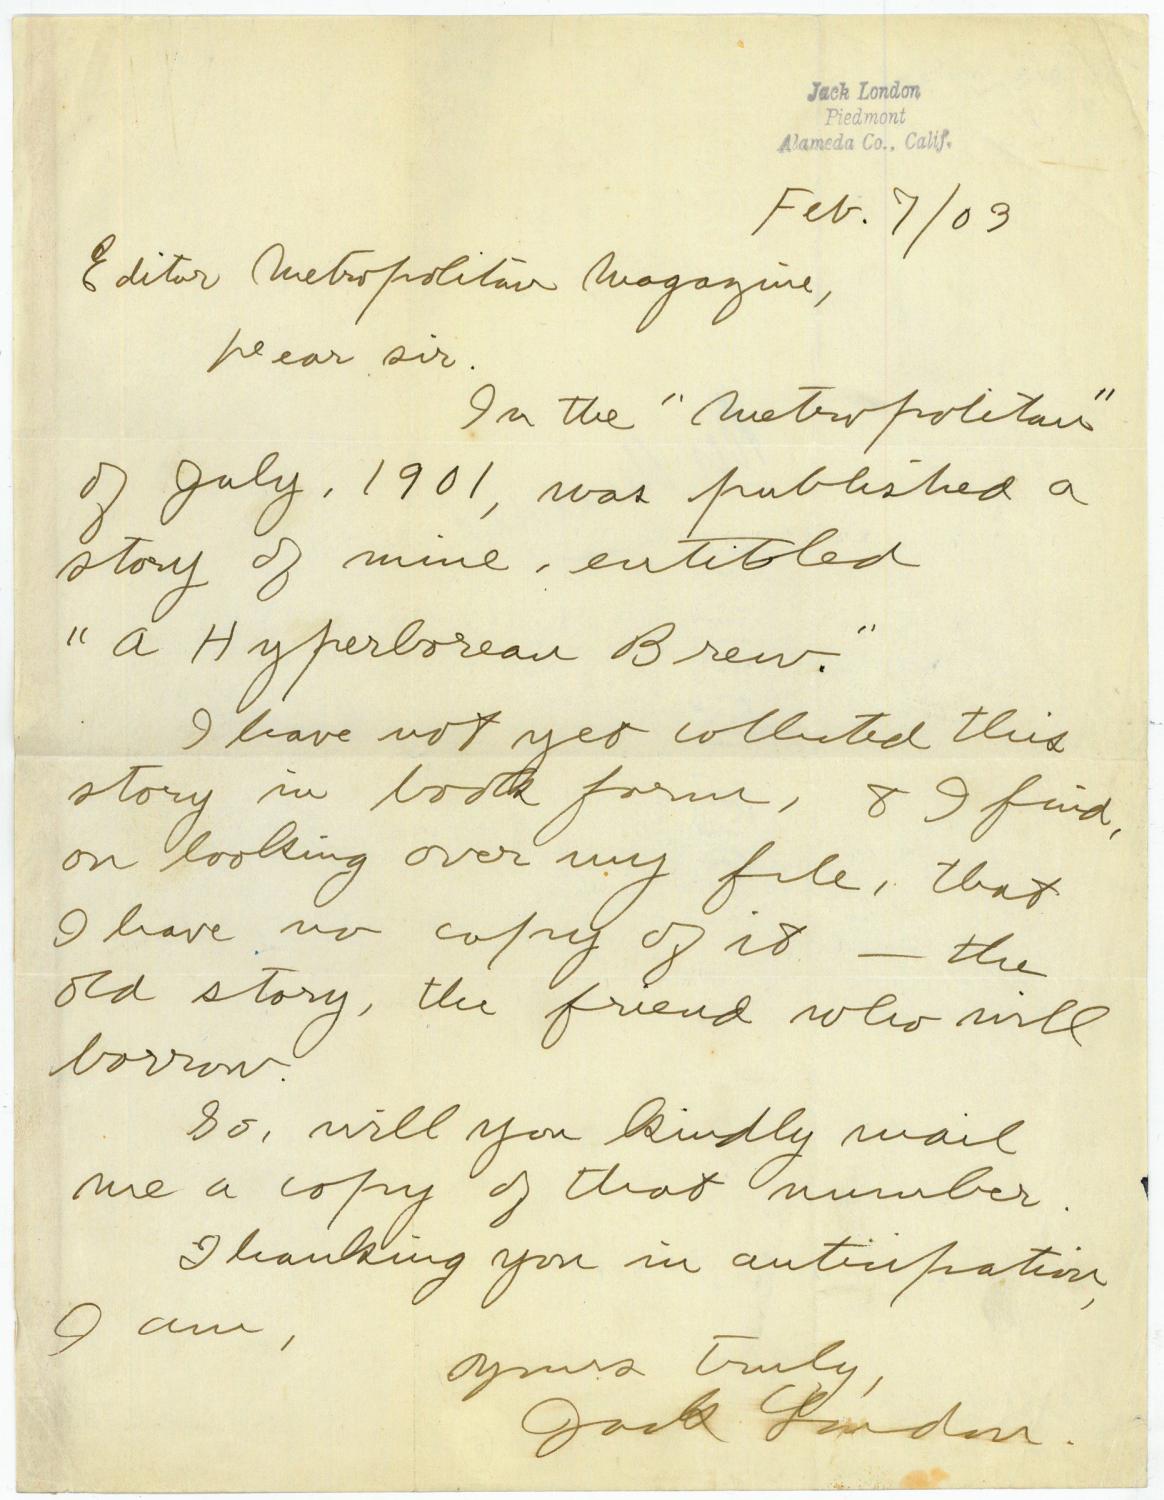 Jack London
Piedmont
Alameda Co., Calif.
Feb. 7/03
Editor Metropolitan Magazine,
Dear sir.
In the "Metropolitan"
of July, 1901, was published a
story of mine, entitled
"A Hyperborean Brew."
I have not yet collected this
story in book form, & I find,
on looking over my file, that
I have no copy of it — the
old story, the friend who will
borrow.
So, will you kindly mail
me a copy of that number.
Thanking you in anticipation,
I am,
Yours truly,
Jack London.